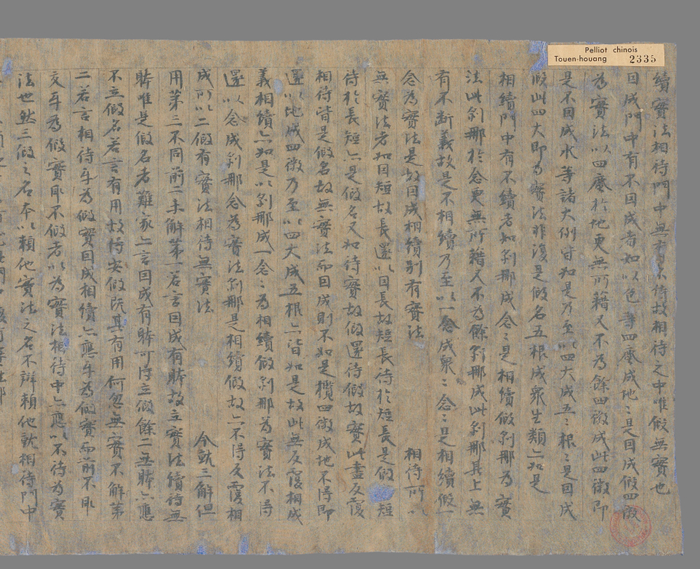 Pelliot chinois
Touen-houang 2335
續實法相待門中無有不待故相待之中唯假無實也
因成門中有不因成者如以色等四塵成地地是因成假四微
為實法以四塵於地更無所藉又不為餘四微成此四微即
是不因成水等諸大例皆如是乃至以四大成五根根是因成
假此四大即為實法非復是假名五根成眾生類亦如是
相續門中有不續者如剎那成念念是相續假剎那為實
法此剎那於念更無所藉又不為餘剎那成此剎那其上無
有不斷義故是不相續乃至以一念成眾念念是相續假一
念為實法是故因成相續別有實法 相待所以
無實法者如因短故長還以因長故短長待於短長是假短
待於長短亦是假名又如待實故假還待假故實此盡反覆
相待皆是假名故無實法而因成則不如是攬四微成地不得即
還以地成四微乃至以四大成五根亦皆如是故此無反覆相成
義相續亦如是以剎那成一念念為相續假剎那為實法不得
還以念成剎那念為實法剎那是相續假故亦不得反覆相
成所以二假有實法相待無實法 今就三解但
用第三不同前二未解第一若言因成有體故立實法續待無
體唯是假名者難家亦言因成有體可得立假餘二無體亦應
不立假名若言有用故得安假既其有用何忽無實不解第
二若言相待平為假實因成相續亦應平為假實而前不即
交平為假實即不假者以為實法相待中亦應以不待為實
法也然三假之名本以賴他實法之名不辨賴他就相待門中